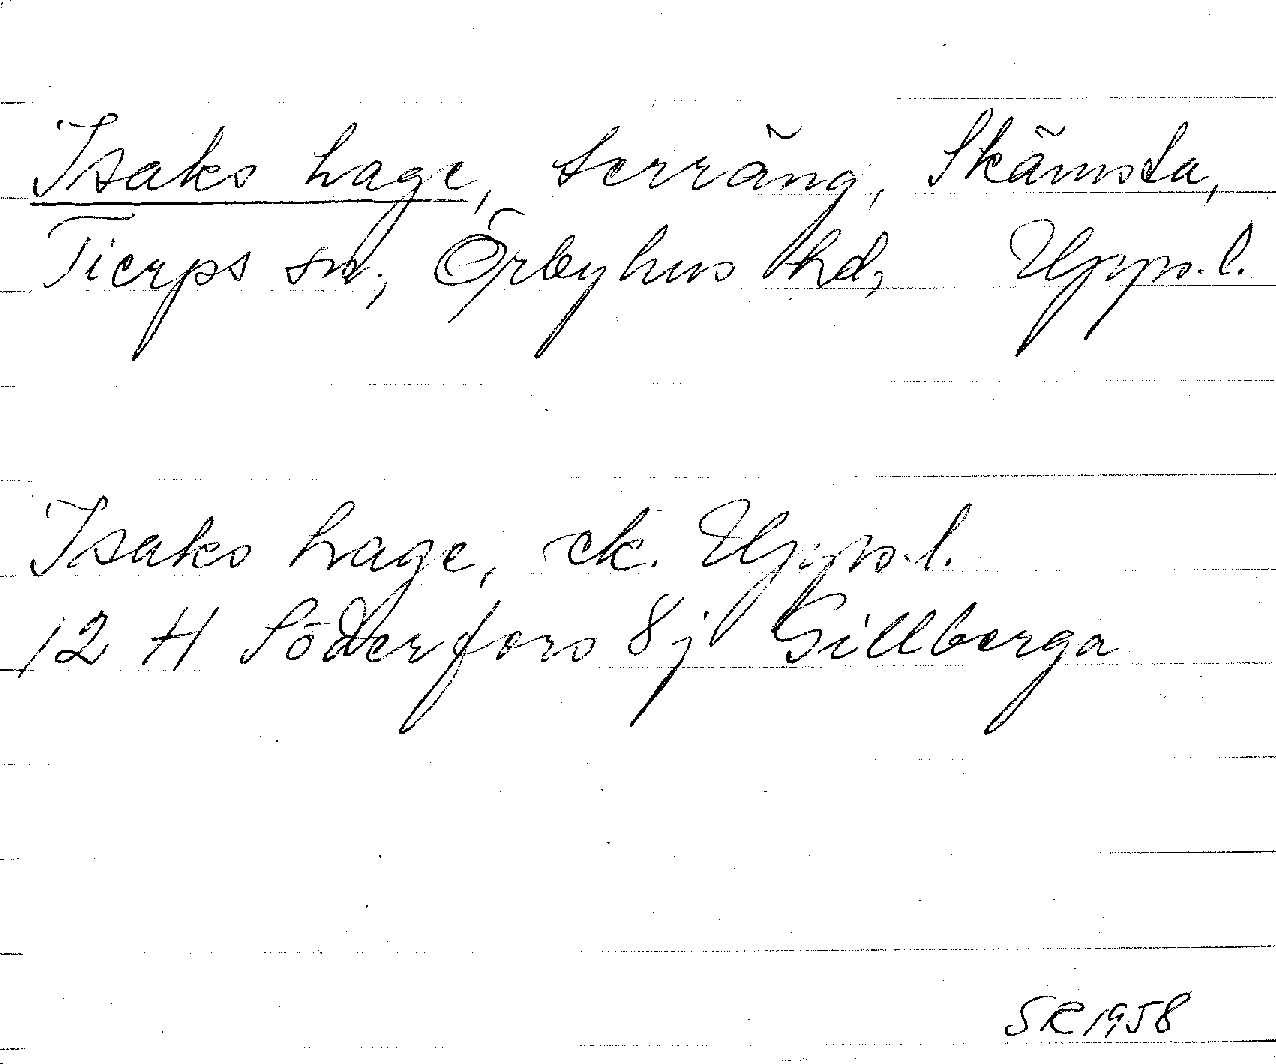 Isaks hage, terräng, Skämsta,
Tierps sn, Örbyhus hd, Uppl.
Isaks hage, ek. Uppl.
12 H Söderfors 8j Gillberga
SR 1958